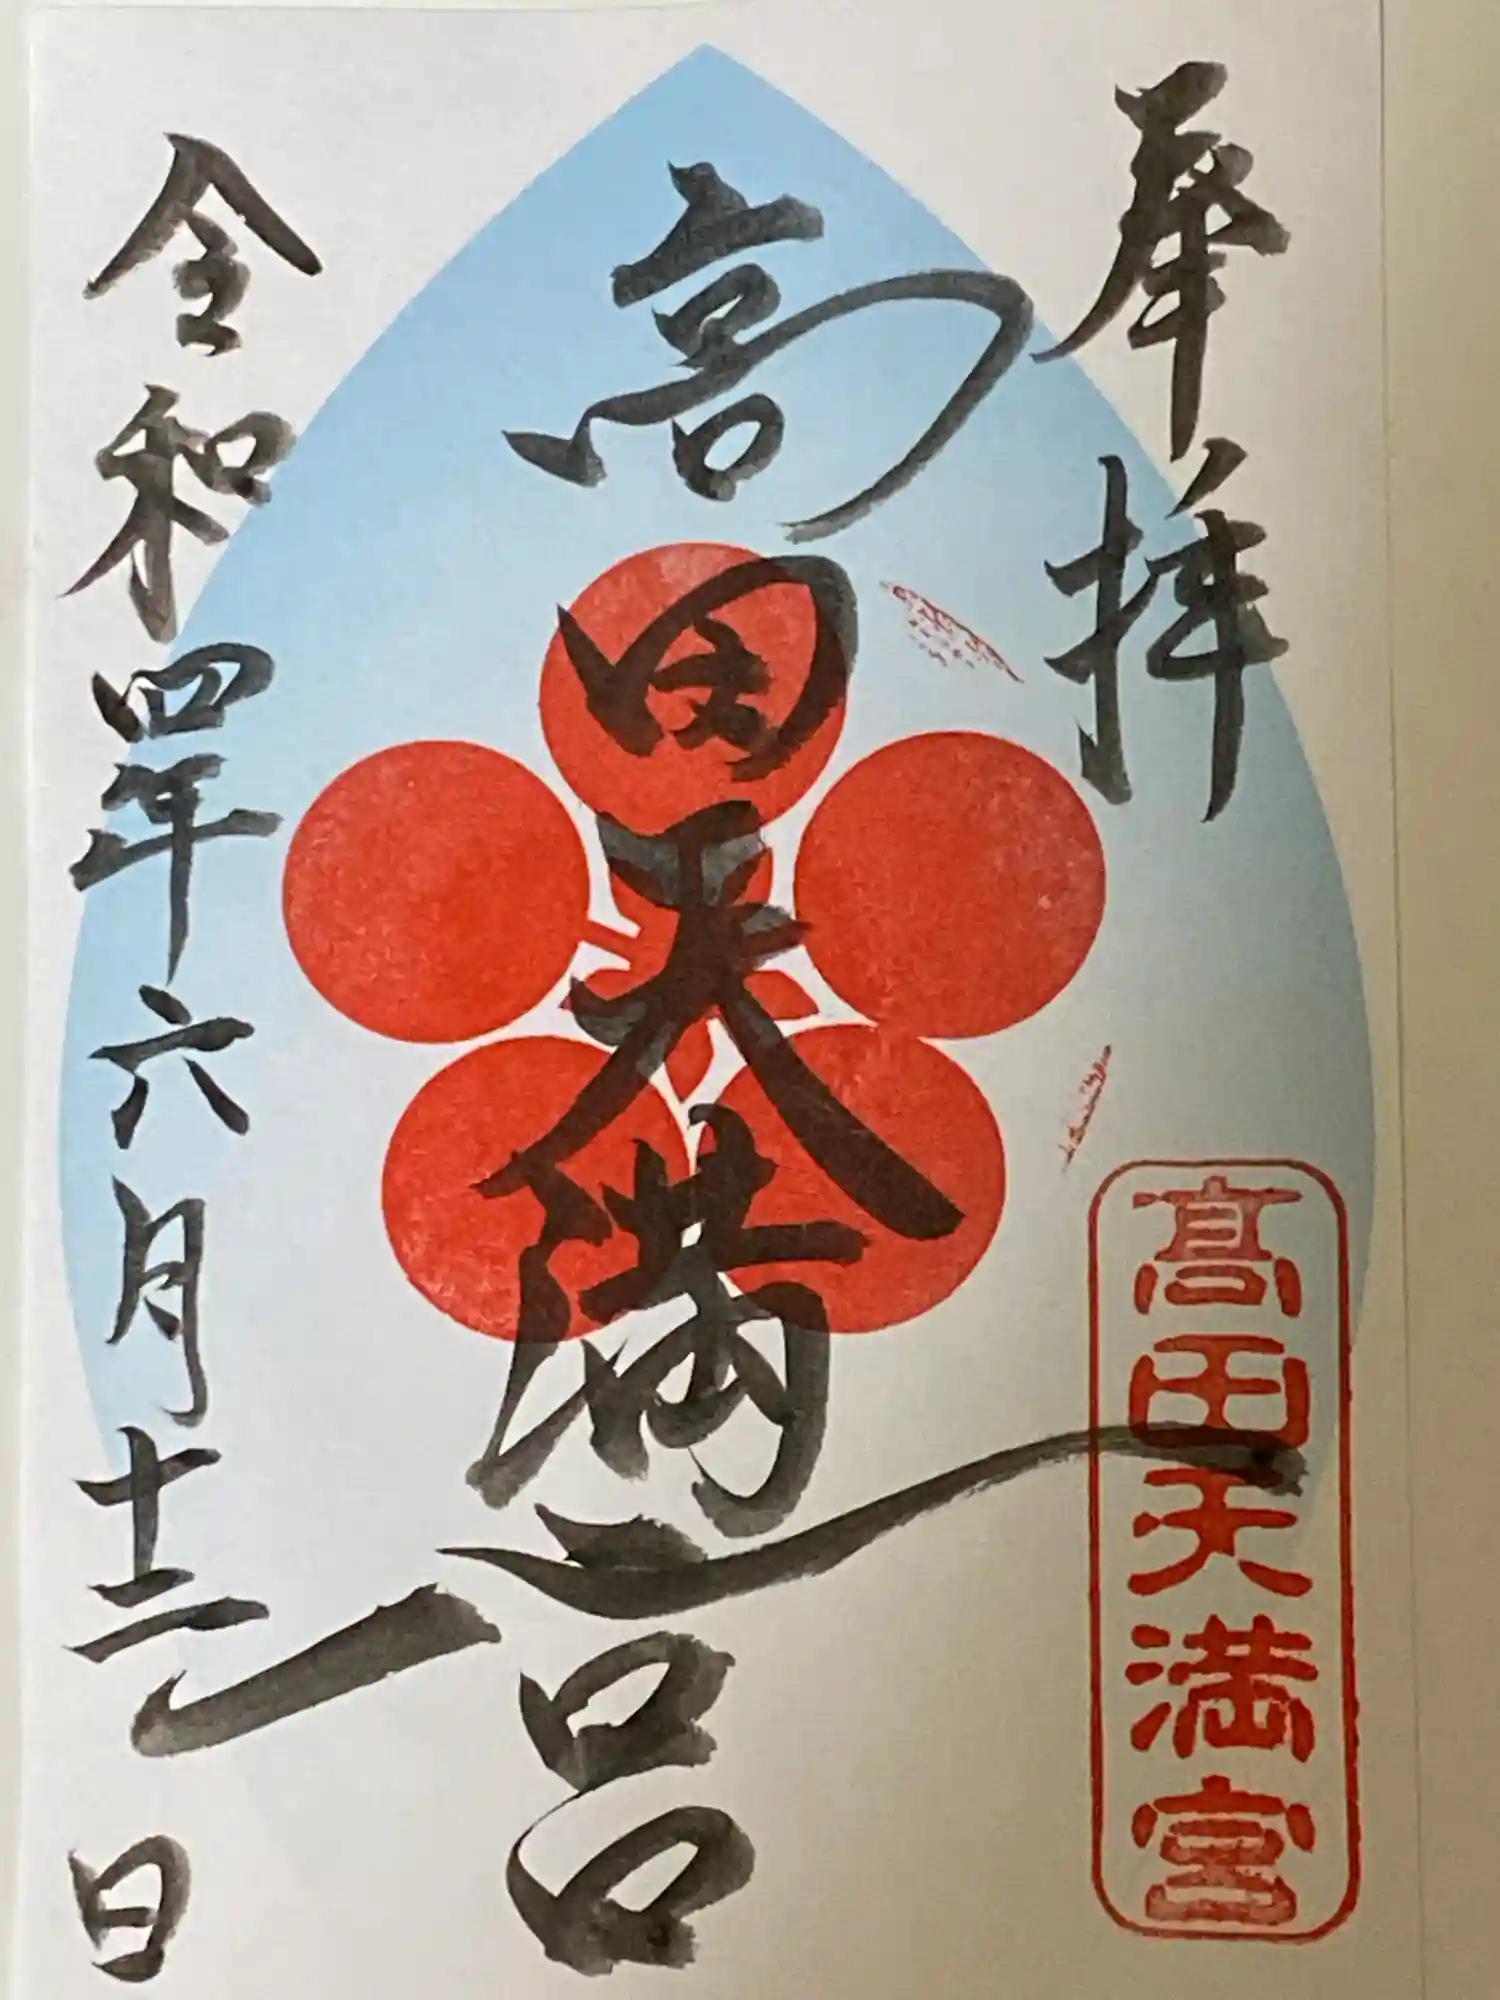 奉拝
高田天満宮
高田天満宮
令和四年六月十二日